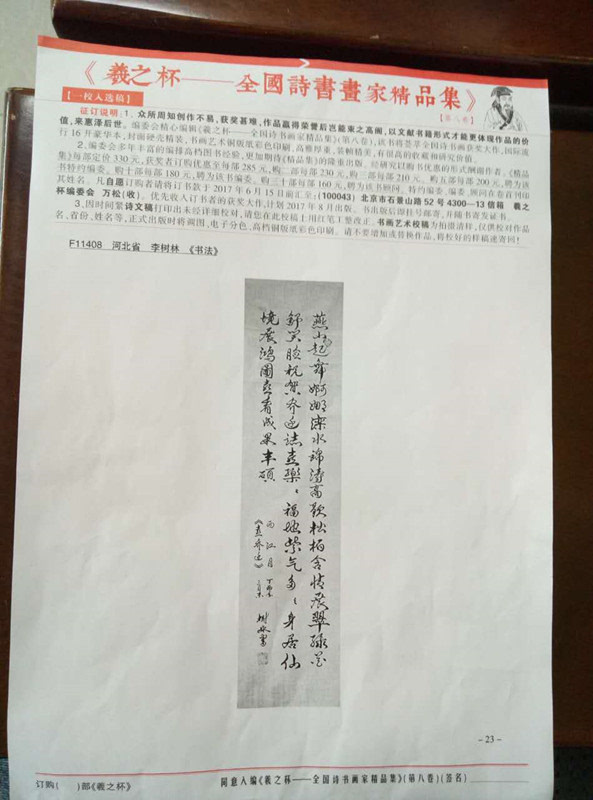 《羲之杯——全國詩書畫家精品集》
【一校入选稿】
【第八卷】
征订说明：1、众所周知创作不易，获奖甚难，作品赢得荣誉后岂能束之高阁，以文献书籍形式才能更体现作品的价
值，来惠泽后世。编委会精心编辑《羲之杯——全国诗书画家精品集》(第八卷)，该书将荟萃全国诗书画获奖大作，国际流
行16开豪华本，封面硬壳精装，书画艺术铜版纸彩色印刷，高雅厚重，装帧精美，有很高的收藏和研究价值。
2、编委会多年丰富的编排高档图书经验，更加期待《精品集》的隆重出版。经研究以购书优惠的形式酬谢作者，《精品
集》每部定价330元，获奖者订购优惠至每部285元，购二部每部230元，购三部每部210元，购五部每部200元，聘为该
书特约编委。购十部每部180元，聘为该书编委。购三十部每部160元，聘为该书顾问、特约编委、编委、顾问在卷首刊印
其姓名。凡自愿订购者请将订书款于2017年6月15日前汇至：(100043) 北京市石景山路52号4300—13信箱 羲之
杯编委会 万松(收)。优先收入订书者的获奖大作，计划2017年8月出版。书出版后即挂号邮寄，并随书寄发证书。
3、因时间紧诗文稿打印出未经详细校对，请您在此校稿上用红笔工整改正。书画艺术校稿为拍摄清样，仅供校对作品
名、省份、姓名等，正式出版时将调图、电子分色、高档铜版纸彩色印刷。请不要增加或替换作品，将校好的样稿速寄回！
F11408 河北省 李树林 《书法》
燕山起舞婀娜滦水锦涛高歌松柏含情展翠绿笔
舒笑脸祝贺乔迁誌喜乐、福地紫气多、身居仙
境展鸿图喜看成果丰硕
西江月
《喜乔迁》
-23-
订购( )部《羲之杯》
同意入编《羲之杯——全国诗书画家精品集》(第八卷)(签名)